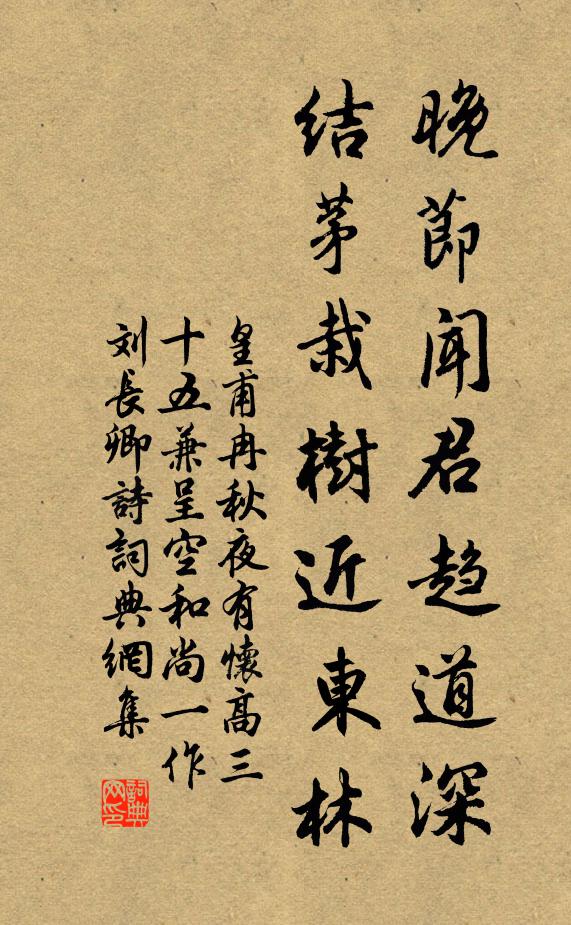 晚節聞君趋道深
結茅栽樹近東林
皇甫冉秋夜有懷高三
十五兼呈空和尚一作
刘長卿詩詞典網集
詞典
网印